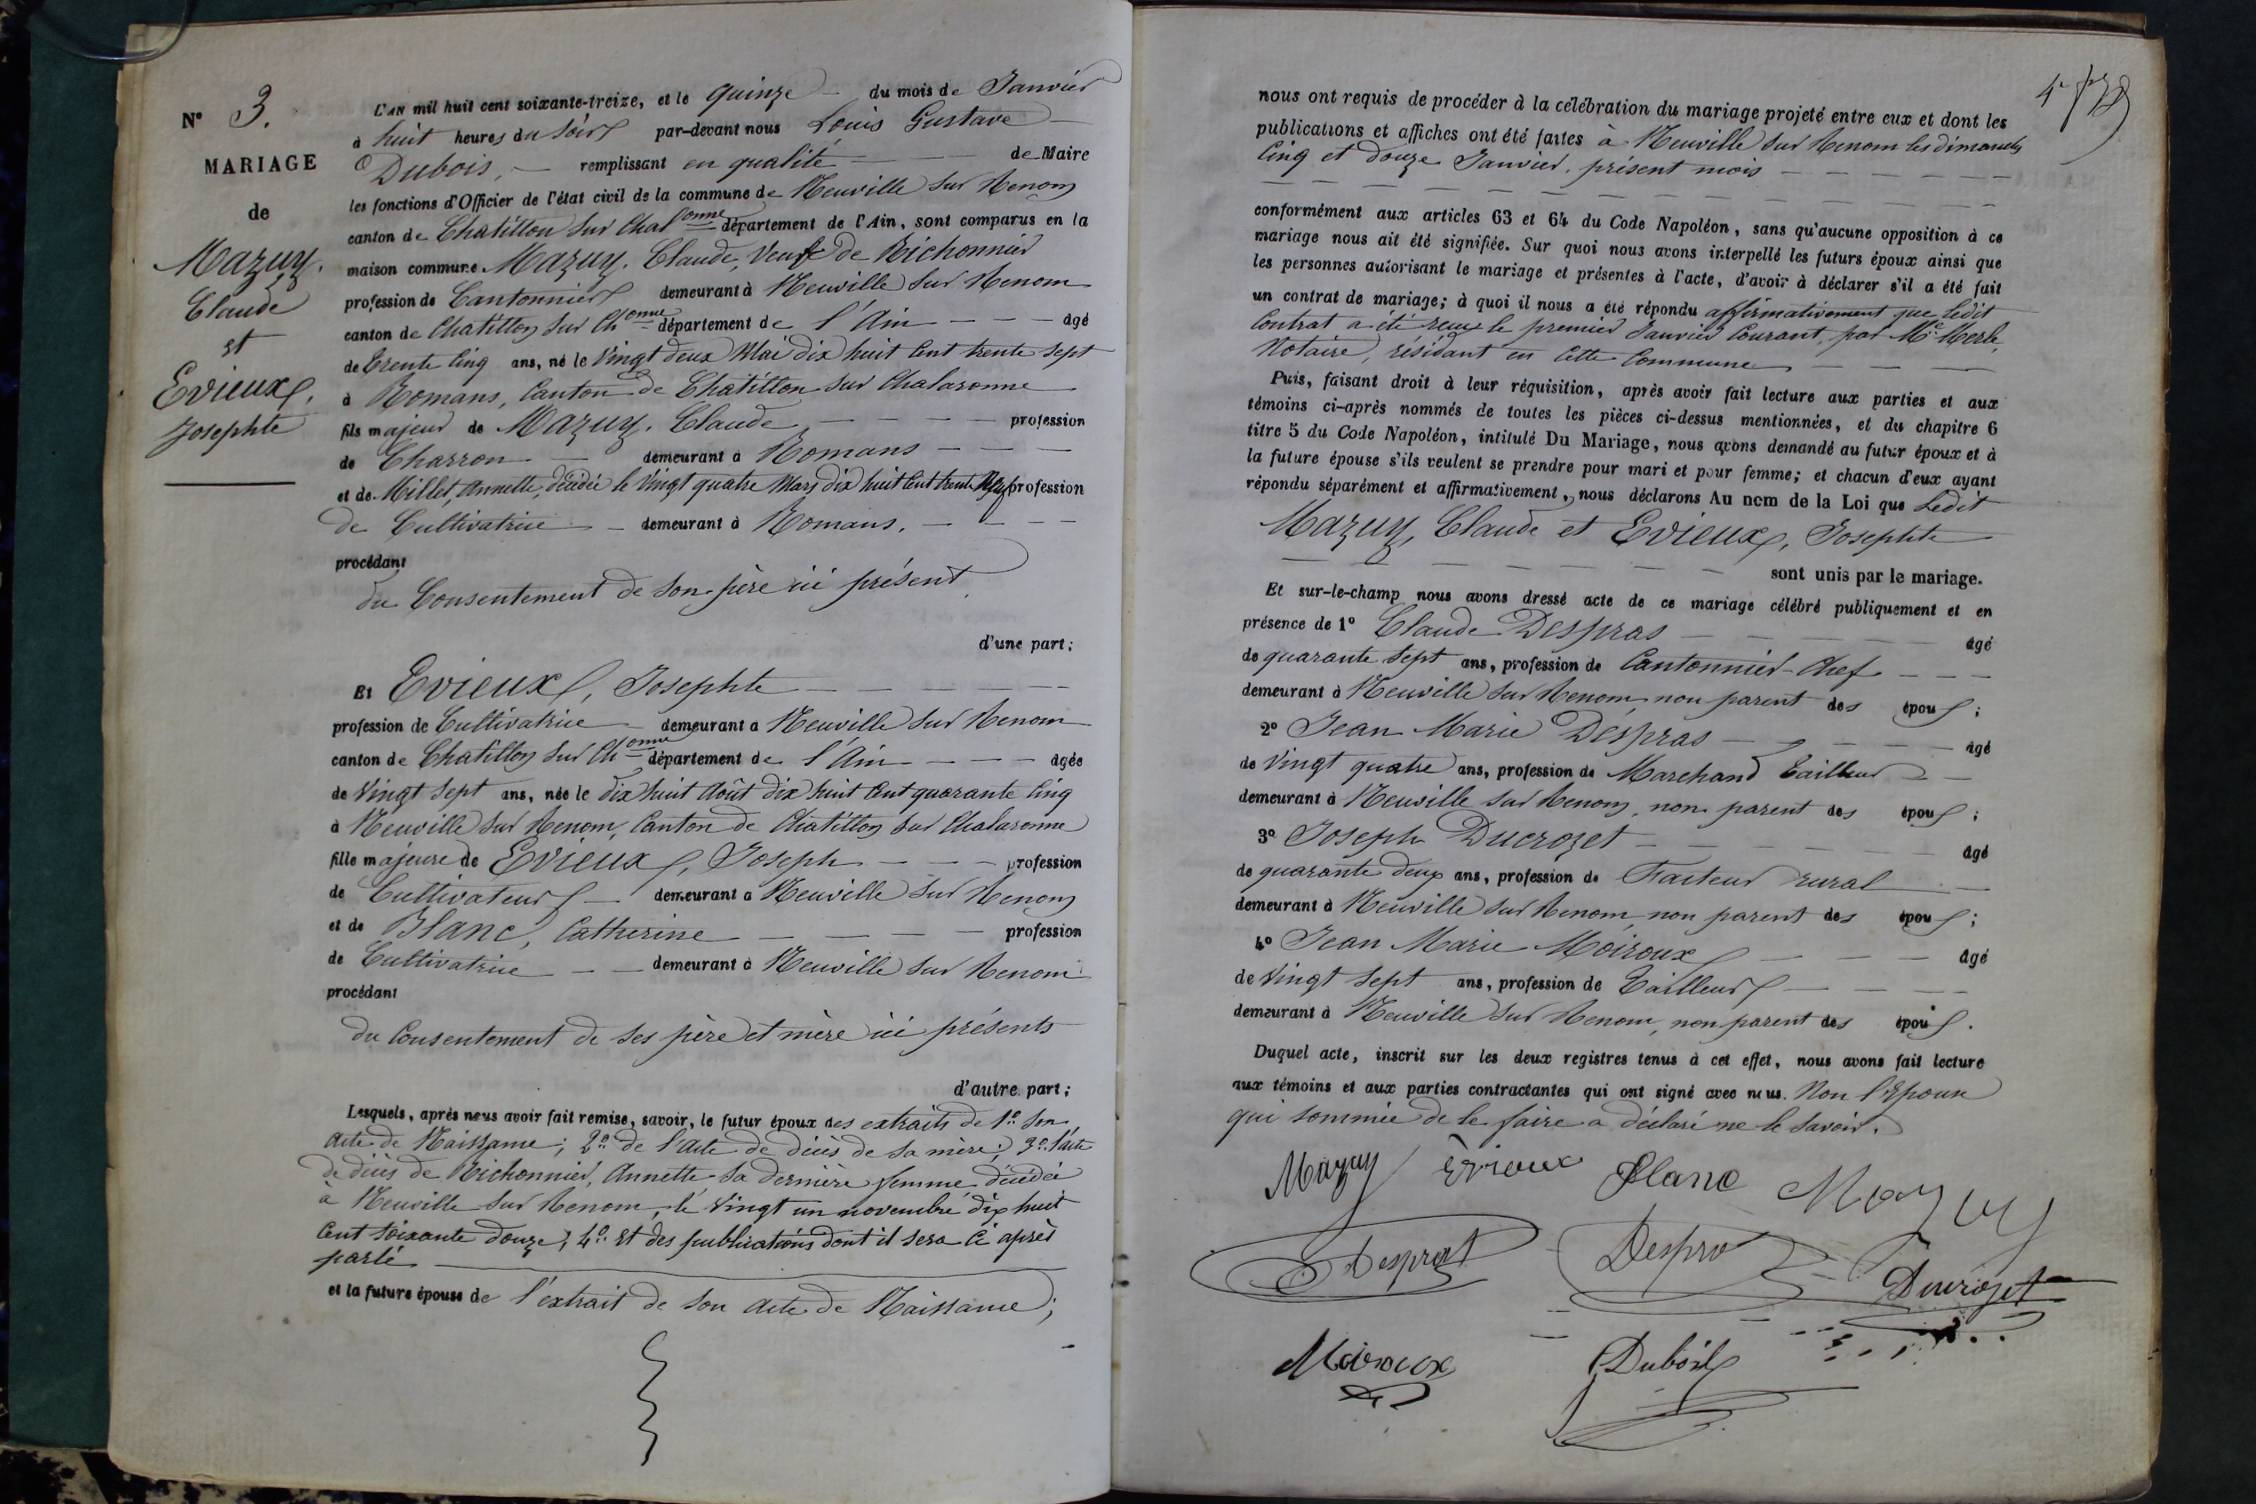 N° 3.
MARIAGE
de
Mazuy.
Claude
et
Evieux,
Josephte
L'AN mil huit cent soixante-treize, et le quinze du mois de Janvier
à huit heures du soir par-devant nous Louis Gustave
Dubois, remplissant en qualité de Maire
les fonctions d'Officier de l'état civil de la commune de Neuville sur Renom
canton de Chatillon sur Chalonne département de l'Ain, sont comparus en la
maison commune Mazuy. Claude, Veuf de Richonnier
profession de Cantonnier demeurant à Neuville sur Renom
canton de Chatillon sur Chonne département de l'Ain âgé
de trente cinq ans, né le Vingt deux Mai dix huit cent trente sept
à Romans, Canton de Chatillon sur Chalaronne
fils majeur de Mazuy. Claude profession
de Charron demeurant à Romans
et de Millet, Annette, décédée le Vingt quatre Mars dix huit cent trente profession
de Cultivatrice demeurant à Romans.
procédant
du Consentement de son père ici présent
d'une part;
Et Evieux, Josephte
profession de Cultivatrice demeurant à Neuville sur Renom
canton de Chatillon sur Chonne département de l'Ain âgée
de Vingt sept ans, née le dix huit Août dix huit cent quarante cinq
à Neuville sur Renom, Canton de Chatillon sur Chalaronne
fille majeure de Evieux, Joseph profession
de Cultivateur demeurant à Neuville sur Renom
et de Blanc, Catherine profession
de Cultivatrice demeurant à Neuville sur Renom
procédant
du Consentement de ses père et mère ici présents
d'autre part;
Lesquels, après nous avoir fait remise, savoir, le futur époux des extraits de 1° son
acte de Naissance; 2° de l'acte de décès de sa mère; 3° l'acte
de décès de Richonnier, Annette sa dernière femme décédée
à Neuville sur Renom, le Vingt un novembre dix huit
cent soixante douze; 4° et des publications dont il sera ci après
parlé
et la future épouse de l'extrait de son acte de Naissance;
nous ont requis de procéder à la célébration du mariage projeté entre eux et dont les
publications et affiches ont été faites à Neuville sur Renom les dimanches
Cinq et douze Janvier, présent mois
conformément aux articles 63 et 64 du Code Napoléon, sans qu'aucune opposition à ce
mariage nous ait été signifiée. Sur quoi nous avons interpellé les futurs époux ainsi que
les personnes autorisant le mariage et présentes à l'acte, d'avoir à déclarer s'il a été fait
un contrat de mariage; à quoi il nous a été répondu affirmativement que ledit
Contrat a été reçu le premier Janvier Courant, par Me Merle,
Notaire, résidant en cette Commune
Puis, faisant droit à leur réquisition, après avoir fait lecture aux parties et aux
témoins ci-après nommés de toutes les pièces ci-dessus mentionnées, et du chapitre 6
titre 5 du Code Napoléon, intitulé Du Mariage, nous avons demandé au futur époux et à
la future épouse s'ils veulent se prendre pour mari et pour femme; et chacun d'eux ayant
répondu séparément et affirmativement, nous déclarons Au nom de la Loi que Ledit
Mazuy, Claude et Evieux, Josephte
sont unis par le mariage.
Et sur-le-champ nous avons dressé acte de ce mariage célébré publiquement et en
présence de 1° Claude Despras âgé
de quarante sept ans, profession de Cantonnier-Chef
demeurant à Neuville sur Renom non parent des époux;
2° Jean Marie Despras âgé
de Vingt quatre ans, profession de Marchand tailleur
demeurant à Neuville sur Renom, non parent des époux;
3° Joseph Ducrozet âgé
de quarante deux ans, profession de Facteur rural
demeurant à Neuville sur Renom, non parent des époux;
4° Jean Marie Moiroux âgé
de Vingt sept ans, profession de Tailleur
demeurant à Neuville sur Renom, non parent des époux.
Duquel acte, inscrit sur les deux registres tenus à cet effet, nous avons fait lecture
aux témoins et aux parties contractantes qui ont signé avec nous. Non l'Epouse
qui sommée de le faire a déclaré ne le savoir.
Mazuy Evieux Blanc Mazuy
Desprat Despra Ducrozet
Moiroux Dubois